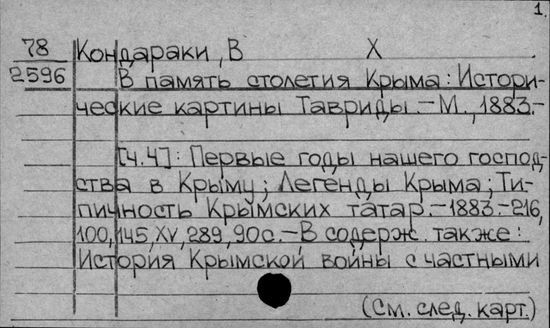 1
78 Кондараки, В X
2596 В память столетия Крыма: Истори-
ческие картины Тавриды.-М., 1883.-
[ч.4]: Первые годы нашего господ-
ства в Крыму; Легенды Крыма; Ти-
пичность Крымских татар.-1883.-216,
100, 145, XV, 289, 90с.-В содерж. также:
История Крымской войны с частными
(См. след. карт.)